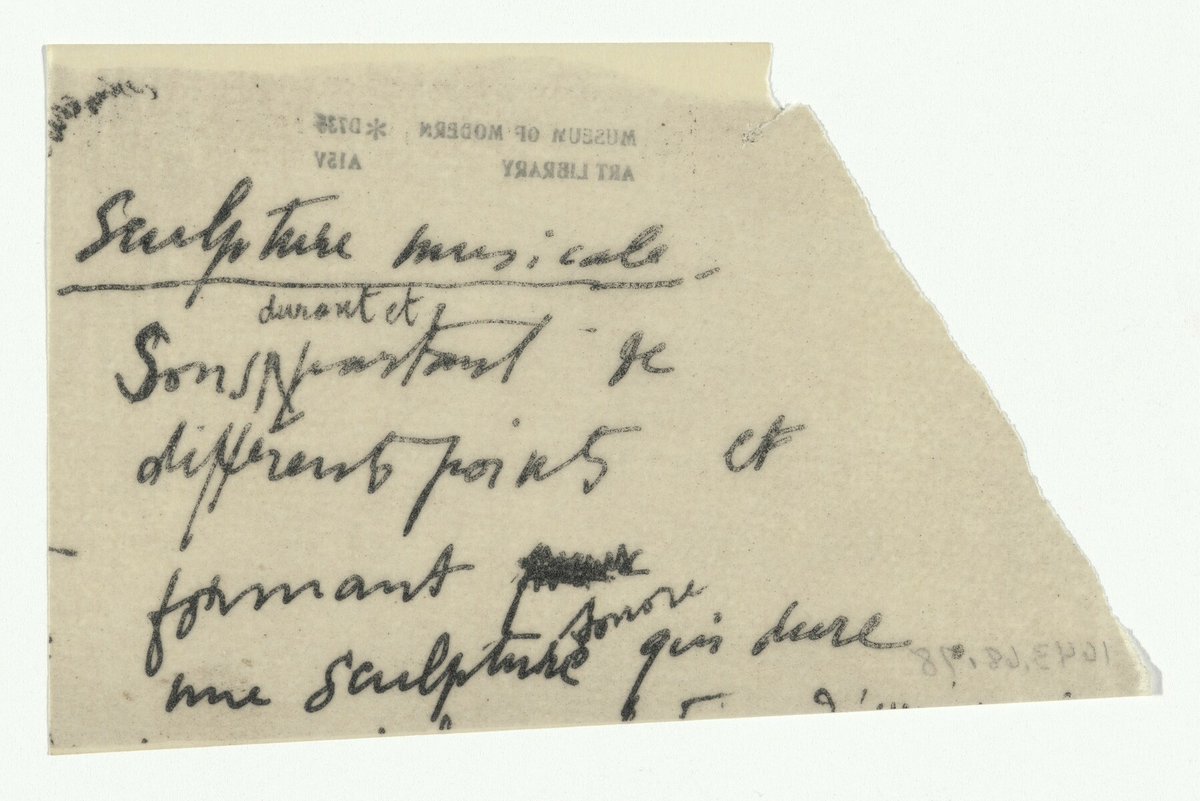 MUSEUM OF MODERN
ART LIBRARY
A15Y
Sculpture musicale.
durant et
Sons partant de
différents points et
formant
sonore
une sculpture qui dure.
1643.68.78